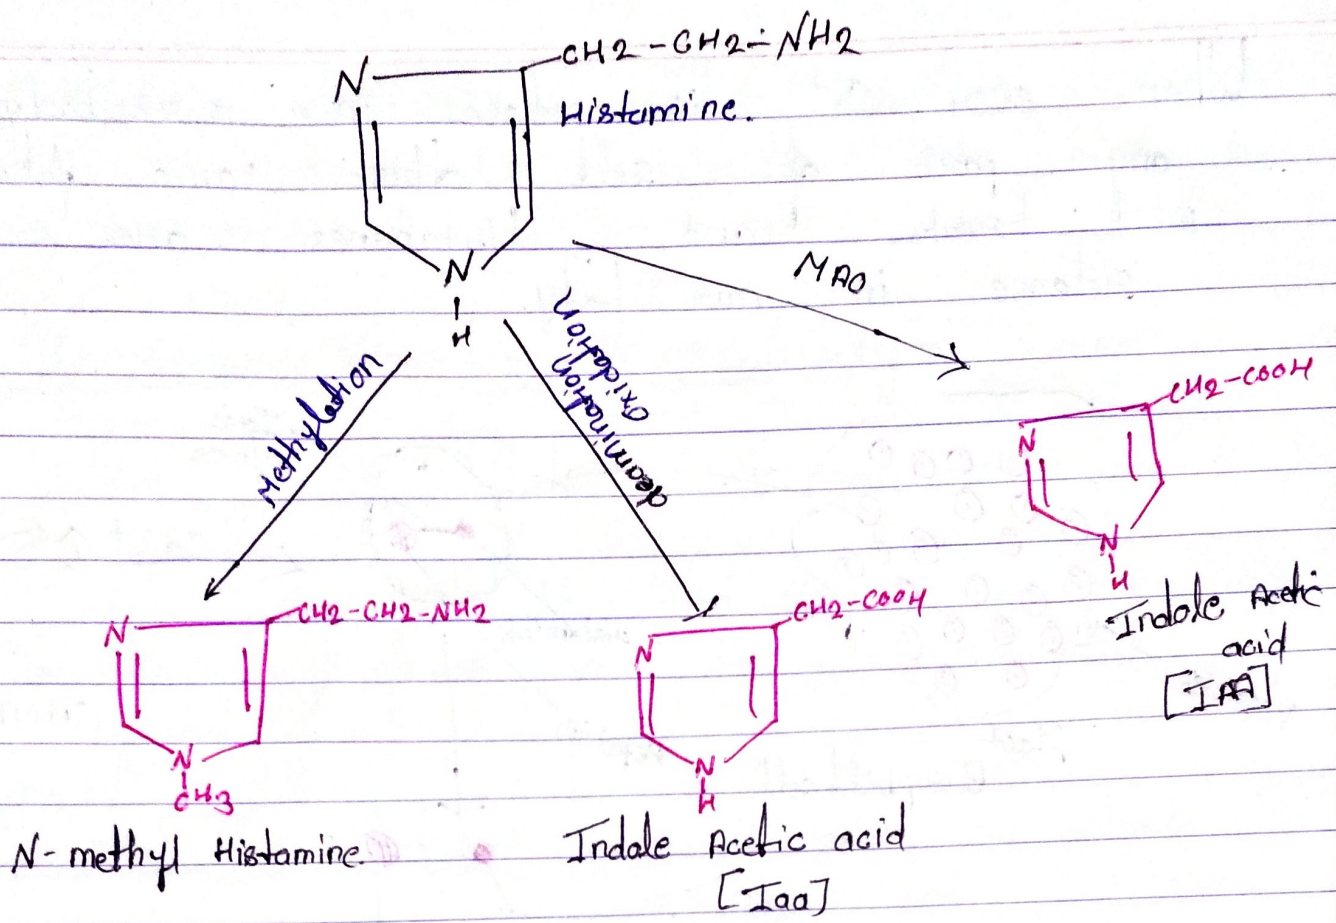 N
CH2-CH2-NH2
Histamine.
N
H
MAO
Methylation
deamination
oxidation
CH2-COOH
N
N
H
Indole Acetic
acid
[IAA]
N
CH2-CH2-NH2
N
CH3
N-methyl Histamine.
CH2-COOH
N
N
H
Indale Acetic acid
[Iaa]